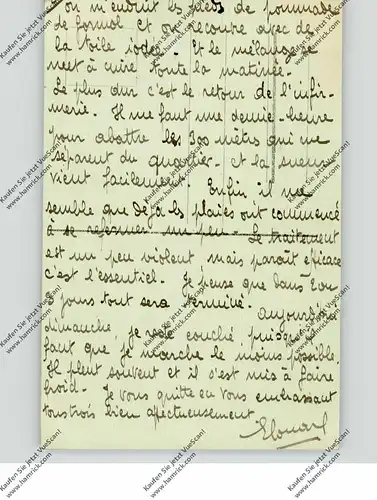 on m'enduit les pieds de pommade
de formol et on recouvre avec de
la toile iodée. Et le mélange se
met à cuire toute la matinée.
Le plus dur c'est le retour de l'infir-
merie. Il me faut une demie-heure
pour abattre les 300 mètres qui me
séparent du quartier. et la sueur
vient facilement. Enfin il me
semble que déjà les plaies ont commencé
à se refermer un peu. Le traitement
est un peu violent mais paraît efficace
c'est l'essentiel. Je pense que dans 2 ou
3 jours tout sera terminé. Aujourd'hui
dimanche, je reste couché, puisqu'il
faut que je marche le moins possible.
Il pleut souvent et il s'est mis à faire
froid. Je vous quitte en vous embrassant
tous trois bien affectueusement
Edouard
Kaufen Sie jetzt VueScan!
www.hamrick.com